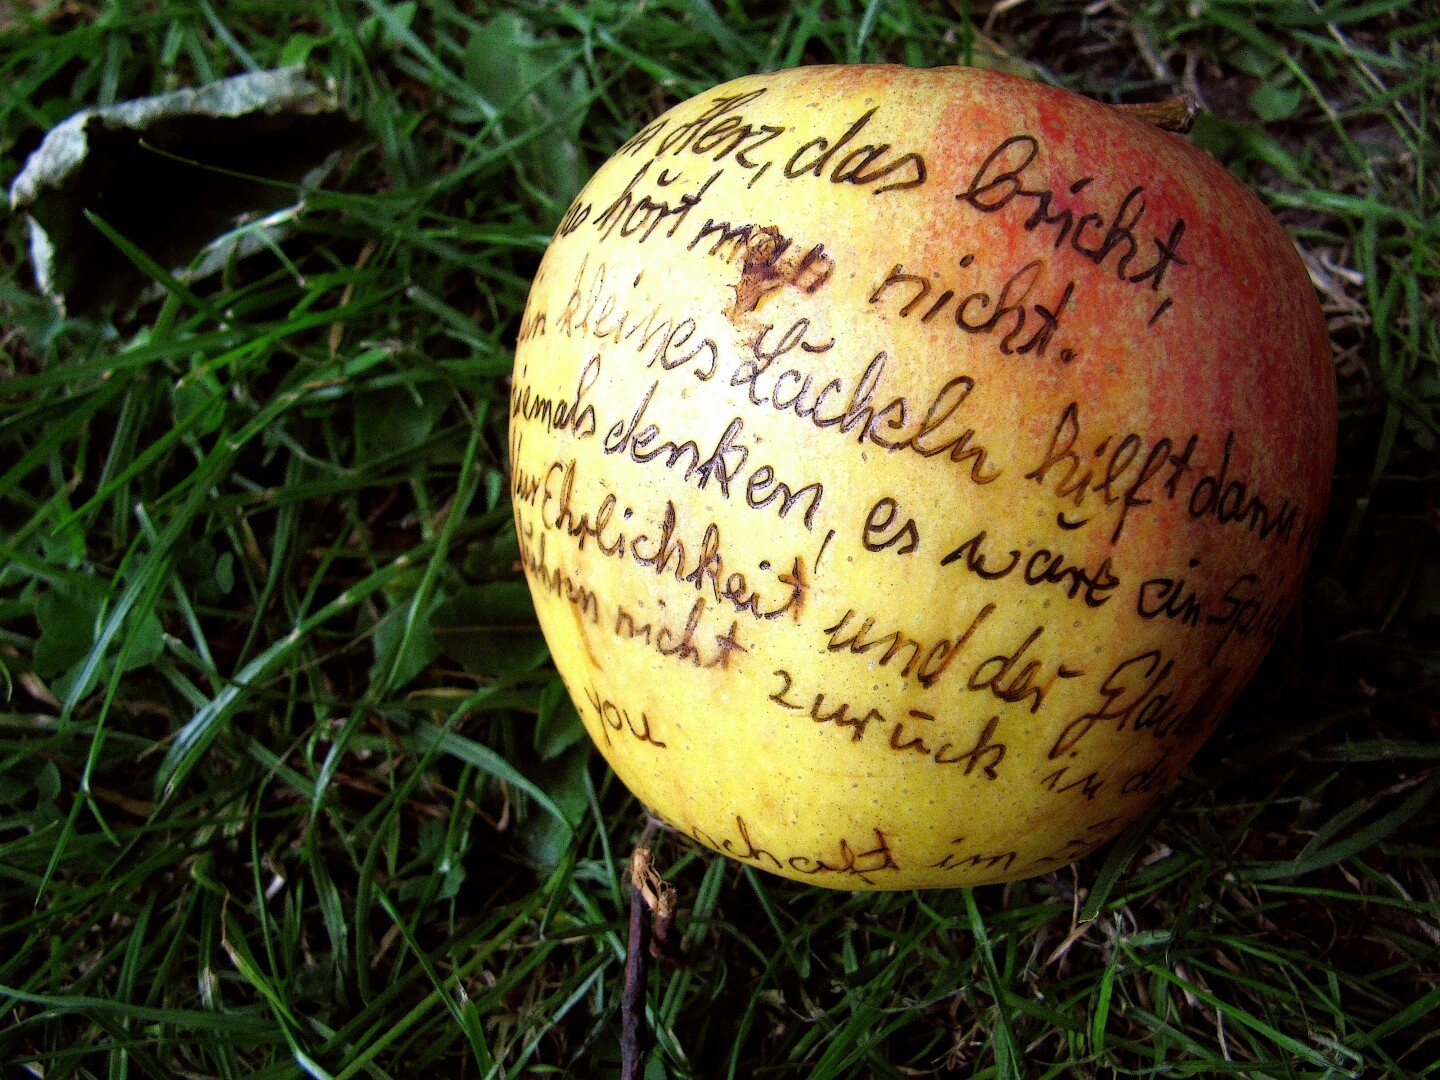 Herz, das bricht,
hört man nicht.
kleines Lächeln hilft dann
niemals denken, es wäre ein
Nur Ehrlichkeit und der
nicht zurück in
you
im